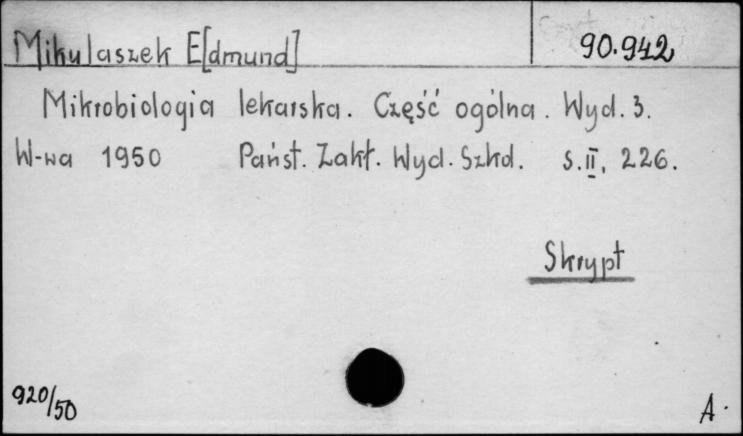 Mikulaszek E[dmund] 90.942
Mikrobiologia lekarska. Część ogólna. Wyd. 3.
W-wa 1950 Państ. Zakł. Wyd. Szkol. s. II, 226.
Skrypt
920/50 A.